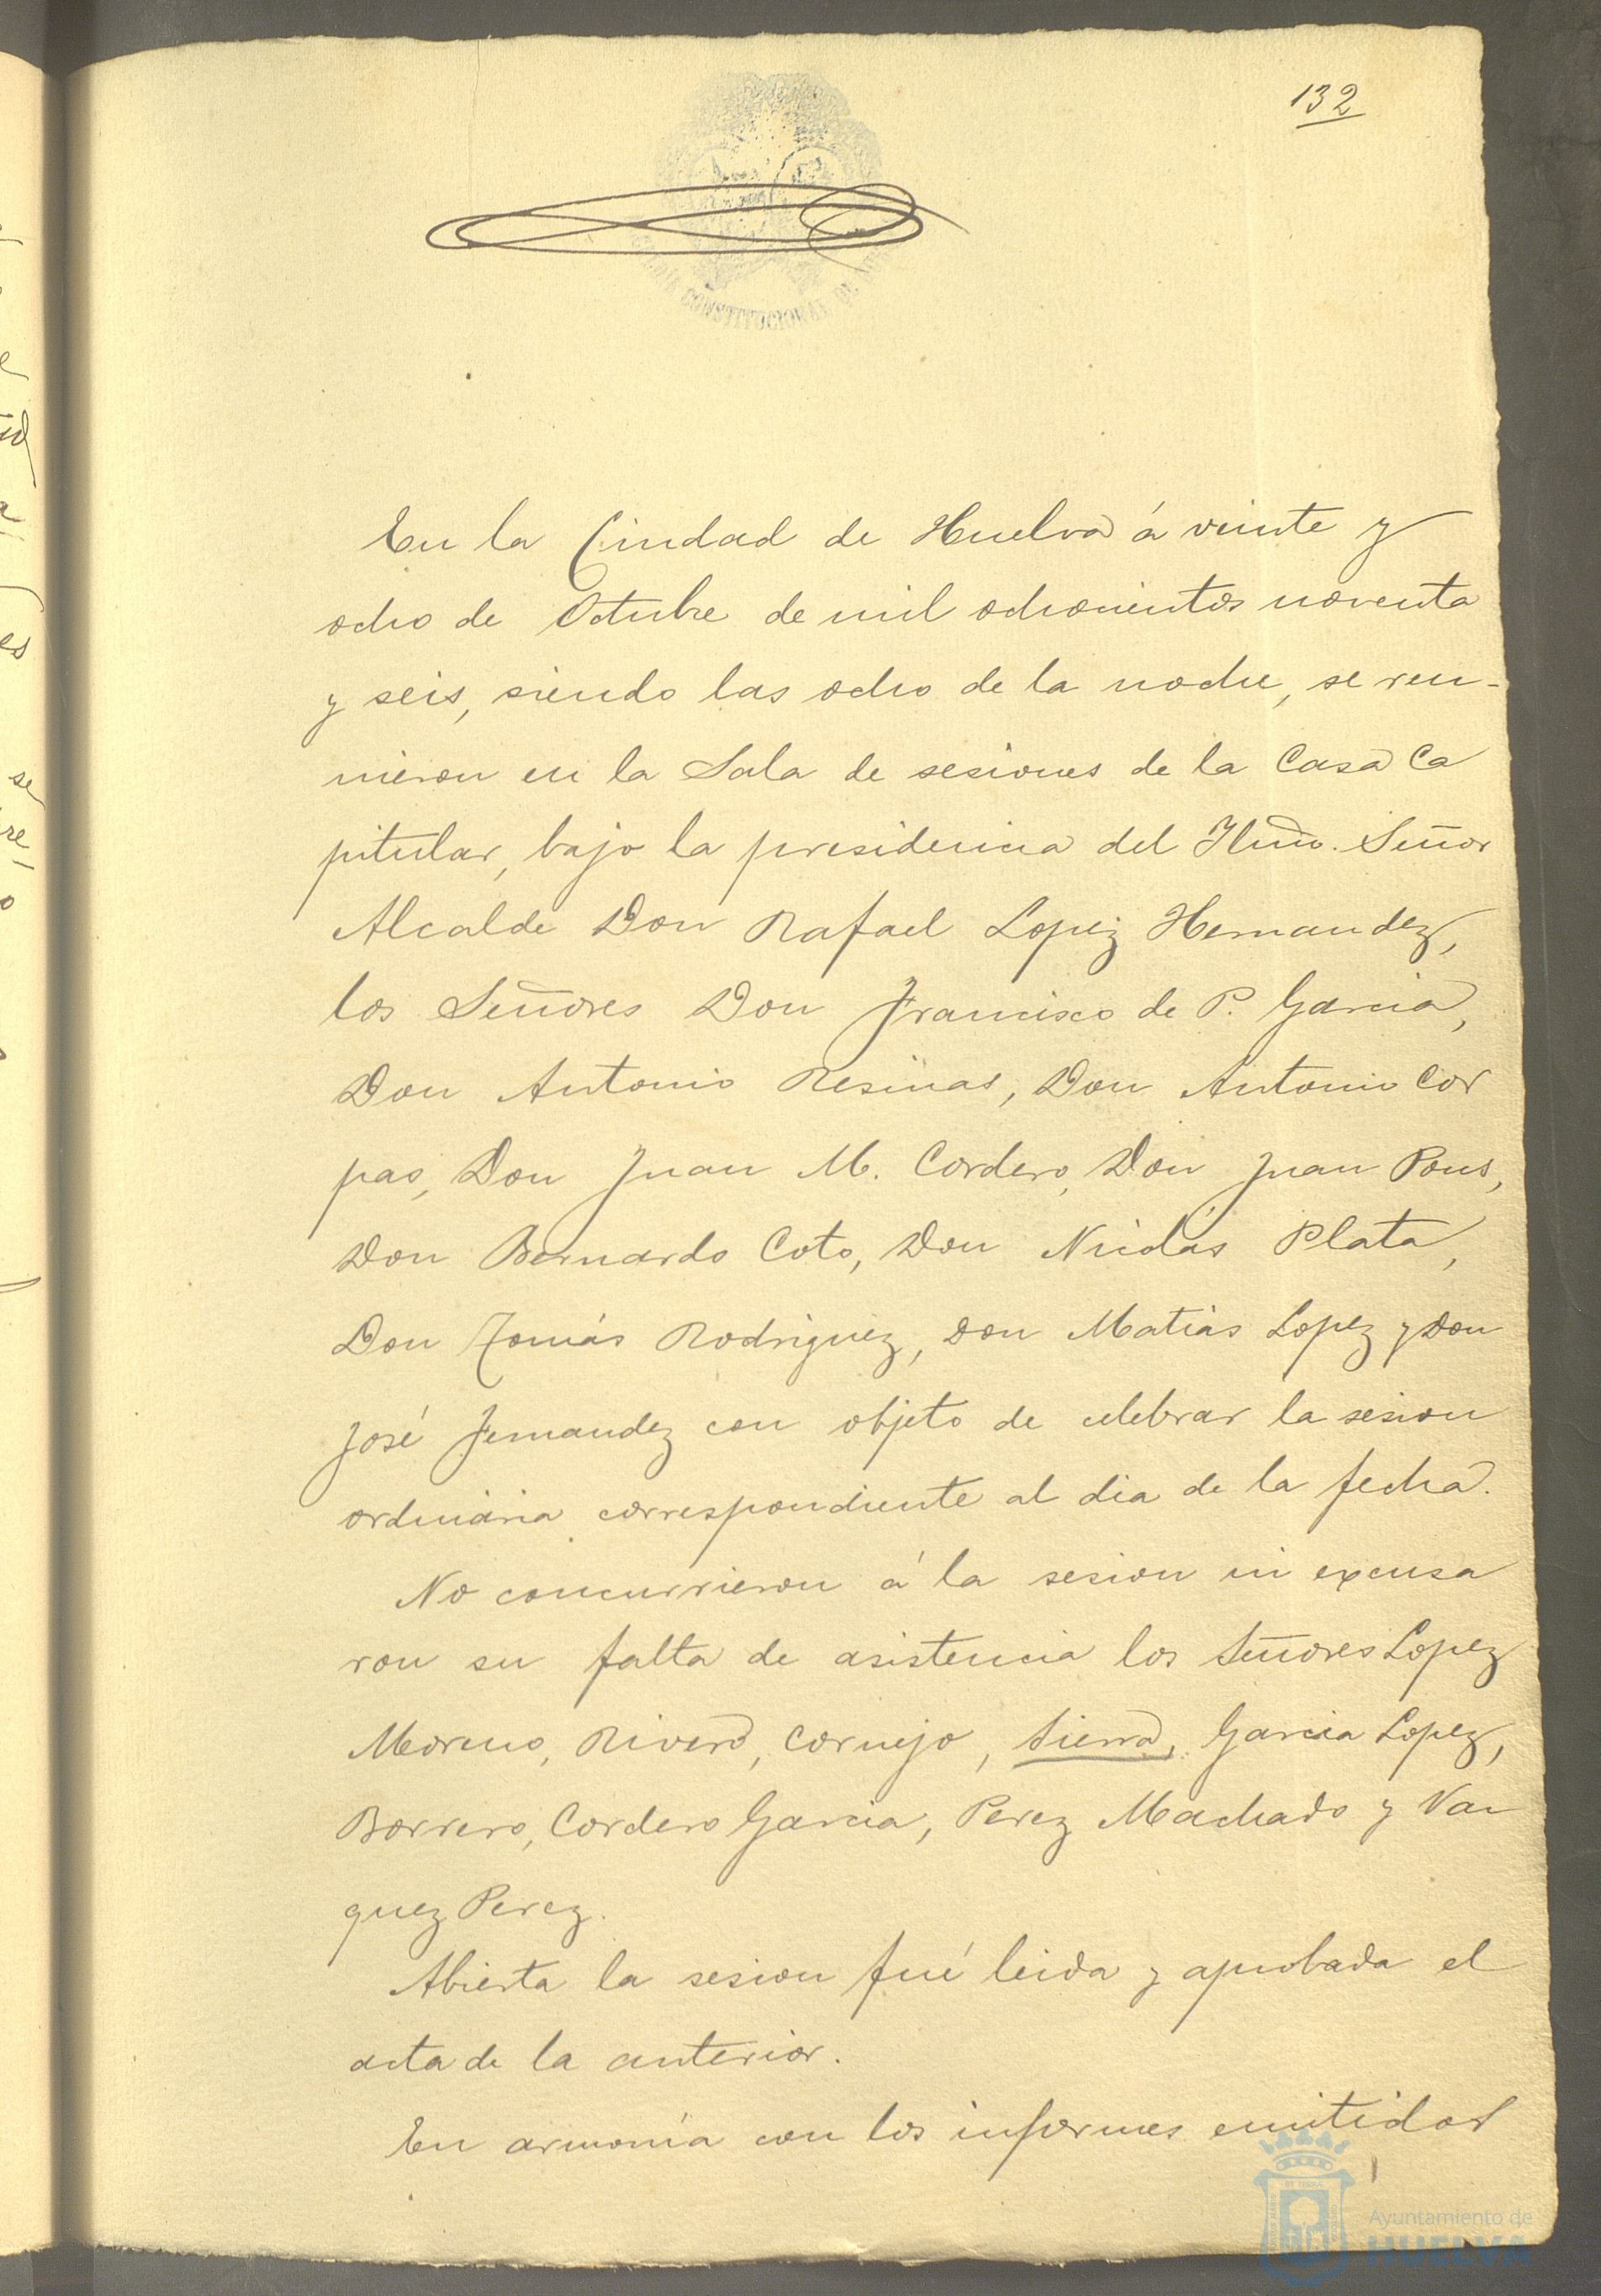 132
CONSTITUCIONAL DE
En la Ciudad de Huelva á veinte y
ocho de Octubre de mil ochocientos noventa
y seis, siendo las ocho de la noche, se reu-
nieron en la Sala de sesiones de la Casa Ca
pitular, bajo la presidencia del Ilmo. Señor
Alcalde Don Rafael Lopez Hernandez,
los Señores Don Francisco de P. Garcia,
Don Antonio Resinas, Don Antonio Cor
pas, Don Juan M. Cordero, Don Juan Pons,
Don Bernardo Coto, Don Nicolás Plata,
Don Tomás Rodriguez, Don Matias Lopez y Don
José Fernandez con objeto de celebrar la sesion
ordinaria correspondiente al dia de la fecha.
No concurrieron á la sesion ni excusa
ron su falta de asistencia los Señores Lopez
Moreno, Rivero, Cornejo, Sierra, Garcia Lopez,
Borrero, Cordero Garcia, Perez Machado y Vaz
quez Perez.
Abierta la sesion fué leida y aprobada el
acta de la anterior.
En armonía con los informes emitidos
Ayuntamiento de
HUELVA